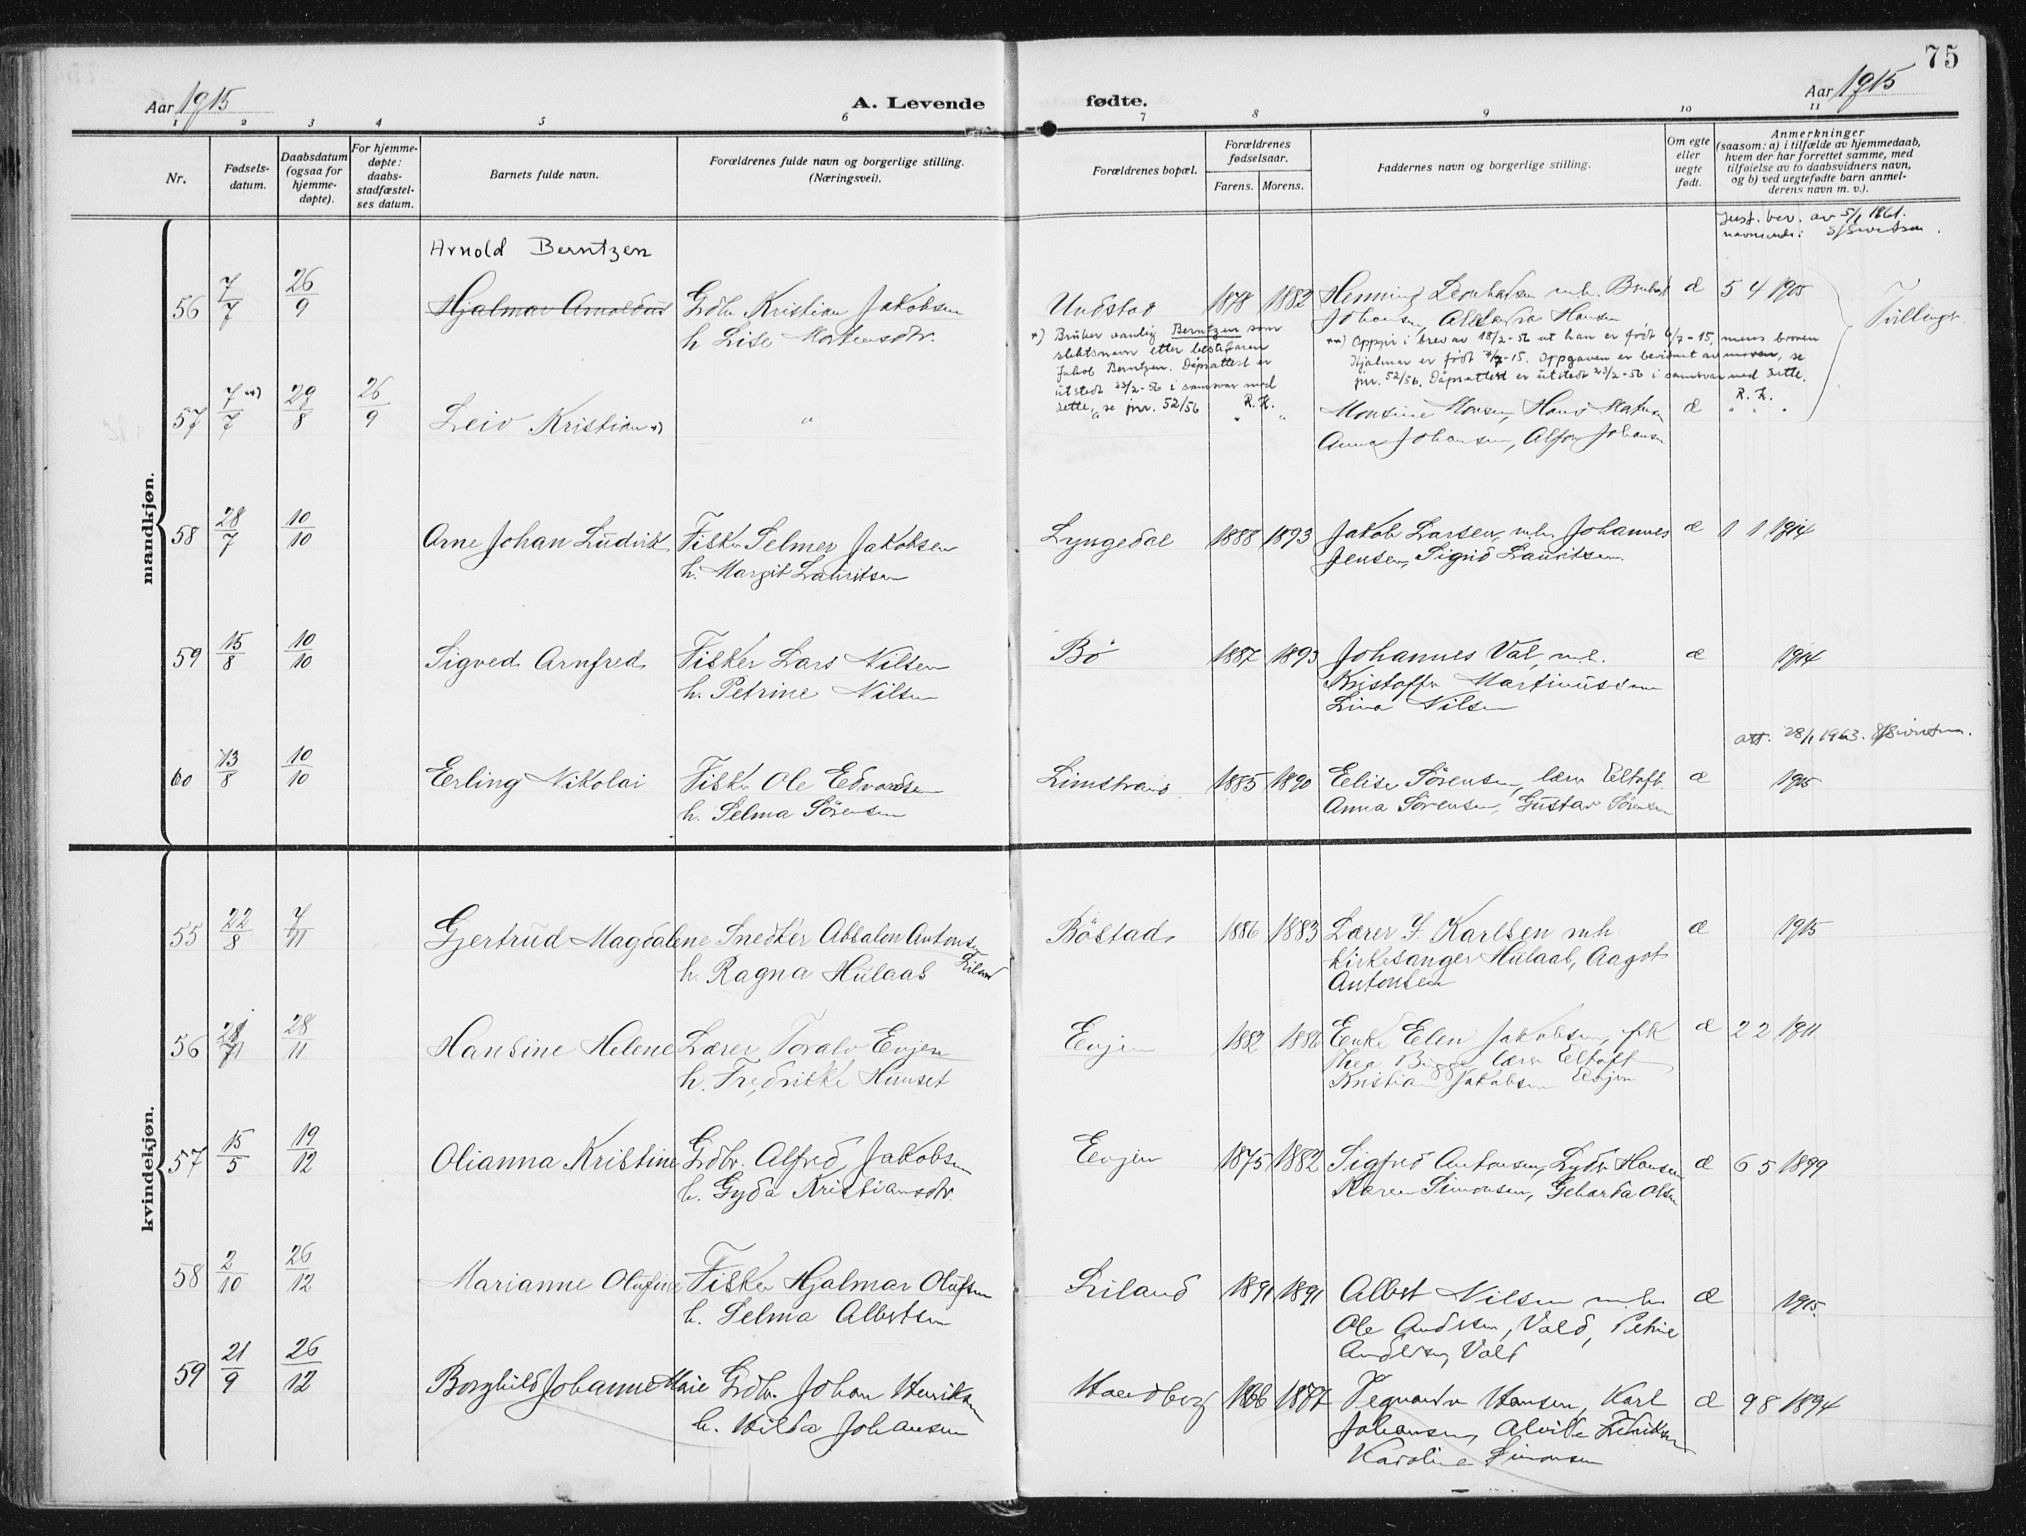 75
Aar 1915 A. Levende fødte. Aar 1915
1 2 3 4 5 6 7 8 9 10 11
Nr.
Fødsels-
datum.
Daabsdatum
(ogsaa for
hjemme-
døpte).
For hjemme-
døpte:
daabs-
stadfæstel-
ses datum.
Barnets fulde navn.
Forældrenes fulde navn og borgerlige stilling.
(Næringsvei).
Forældrenes bopæl.
Forældrenes
fødselsaar.
Farens. Morens.
Faddernes navn og borgerlige stilling.
Om egte
eller
uegte
født.
Anmerkninger
(saasom: a) i tilfælde av hjemmedaab,
hvem der har forrettet samme, med
tilføielse av to daabsvidners navn,
og b) ved uegtefødte barn anmel-
derens navn m. v.).
Just. bev. av 5/1 1861.
mandkjøn.
Arnold Berntzen
56 7/7 26/9 Hjalmar Arnoldus Gdbr. Kristian Jakobsen Undstad 1878 1882 Henning m.h. æ 5 4 1905
h. Lise Mortensdtr. Johansen, Hansen Tvillinger
*) Bruker vanlig Berntzen som
slektsnavn etter bestefaren
Jakob Berntzen. Dåpsattest er
utstedt 23/2-56 i samsvar med
dette, se jnr. 52/56 R. K.
**) Oppgir i brev av 18/2-56 at han er født 6/7-15, mens broren
Hjalmar er født 7/7-15. Oppgaven er bevidnet av moren, se
jnr. 52/56. Dåpsattest er utstedt 23/2-56 i samsvar med dette.
R. K.
57 7/7 **) 29/8 26/9 Leiv Kristian *) " " " " Monsine Hansen, Hans æ " " "
Anna Johansen, Alfon Johansen
58 28/7 10/10 Arne Johan Ludvik Fisker Selmer Jakobsen Lyngedal 1888 1893 Jakob Larsen m.h. Johannes æ 1 1 1914
h. Margit Lauritsen Jensen, Sigrid Lauritsen.
59 15/8 10/10 Sigved Arnfred Fisker Lars Nilsen Bø 1887 1893 Johannes Val, m.h. æ 1914
h. Petrine Nilsen Kristoffer Martinussen
Lina Nilsen
att. 28/1 1963.
60 13/8 10/10 Erling Nikolai Fisker Ole Edvardsen Limstrand 1885 1890 Elise Sørensen, lærer Eltoft æ 1915
h. Selma Sørensen Anna Sørensen, Gustav Sørensen
kvindekjøn.
55 22/8 7/11 Gjertrud Magdalene Snedker Absalon Antonsen Bøstad 1886 1883 Lærer J. Karlsen m.h. æ 1915
h. Ragna Hulaas Eiland Kirkesanger Hulaas, Aagot
Antonsen
56 28/11 Hansine Helene Lærer Toralv Evjen Evjen 1882 1886 Enke Elen Jakobsen, frk æ 2 2 1911
h. Fredrikke Hunset Thea Bugge lærer Eltoft
Kristian Jakobsen Evjen
57 15/5 19/12 Olianna Kristine Grdbr. Alfred Jakobsen Evjen 1875 1882 Sigfred Antonsen, Lydr Hansen æ 6 5 1899
h. Gyda Kristiansdtr. Karen Simonsen, Geharda Olsen
58 2/10 26/12 Marianne Olufine Fisker Hjalmar Olufsen Eiland 1891 1891 Albert Nilsen m.h. æ 1915.
h. Selma Albertsen Ole Andersen, Vold, Petrine
Andersen, Vold
59 21/9 26/12 Borghild Johanne Marie Grdbr. Johan Henriksen Haendberg 1866 1877 Hansen, Karl æ 9 8 1894
h. Hilda Johansen Johansen, Alvilde
Karoline Simonsen